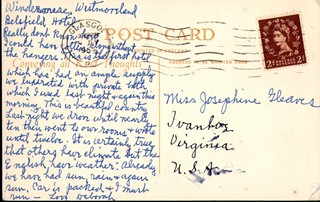 Windermere, Westmoreland
Belsfield Hotel
Really don't
I could have gotten along without
the hangers the first hotel
which has had an ample supply
we insisted with private bath
which I used last night & again this
morning. This is beautiful country
Last night we drove until nearly
ten then went to our rooms & wrote
until twelve. It is certainly true
that others have climate but the
English have weather; already
we have had sun, rain & again
sun. Car is packed & I must
run — Love Deborah
POST CARD
GLASGOW
Miss Josephine Gleaves
Ivanhoe
Virginia
U.S.A.
POSTAGE REVENUE
2d 2d